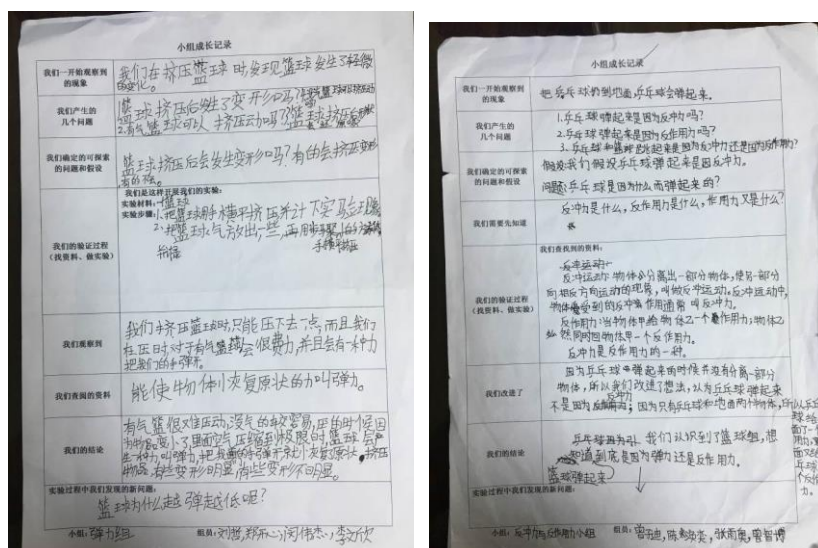 小组成长记录
我们一开始观察到
的现象
我们在挤压篮球时,发现篮球发生了轻微
的变化。
我们产生的
几个问题
篮球挤压后发生了变形吗?
2.有气篮球可以挤压动吗?
我们确定的可探索
的问题和假设
篮球挤压后会发生变形吗?有的会挤压变形
有的不会。
我们的验证过程
(找资料、做实验)
我们是这样开展我们的实验:
实验材料:篮球
实验步骤:1.把篮球用手横平挤压并计下实验现象
2.把篮球气放出一些,再用
我们观察到
我们挤压篮球时,只能压下去一点,而且我们
在压时对于有气篮球会很费力,并且会有一种力
把我们的手弹开。
我们查阅的资料
能使物体恢复原状的力叫弹力。
我们的结论
有气篮很难压动,没气的较容易,压的时候因
为体积变小了里面空气压缩到极限时,篮球会产
生一种力,叫弹力,把我们的手弹开来恢复原状。挤压
物品,有些变形明显,有些变形不明显。
实验过程中我们发现的新问题:
篮球为什么越弹越低呢?
小组:弹力组
组员:刘哲,郑开心,闵伟杰,李文欣
小组成长记录
我们一开始观察到
的现象
把乒乓球扔到地面,乒乓球会弹起来。
我们产生的
几个问题
1.乒乓球弹起来是因为反冲力吗?
2.乒乓球弹起来是因为反作用力吗?
3.乒乓球和篮球跳起来是因为反冲力还是因为反作用力?
我们确定的可探索
的问题和假设
假设:我们假设乒乓球弹起来是因反冲力。
问题:乒乓球是因为什么而弹起来的?
我们需要先知道
反冲力是什么,反作用力是什么,作用力又是什么?
我们的验证过程
(找资料、做实验)
我们查找到的资料:
反冲运动
反冲运动:物体分离出一部分物体,使另一部分
向相反方向运动的现象,叫做反冲运动。反冲运动中,
物体受到的反冲作用通常叫反冲力。
反作用力:当物体甲给物体乙一个作用力;物体乙
必然同时回物体甲一个反作用力。
反冲力是反作用力的一种。
我们改进了
因为乒乓球弹起来的时候并没有分离一部分
物体,所以我们改进了想法,认为乒乓球弹起来
不是因为反冲力;因为只有乒乓球和地面两个物体,所以乒乓
球给
我们的结论
我们认识到了篮球组,想
知道到底是因为弹力还是反作用力。
篮球弹起来
实验过程中我们发现的新问题:
小组:反冲力与反作用力小组
组员: